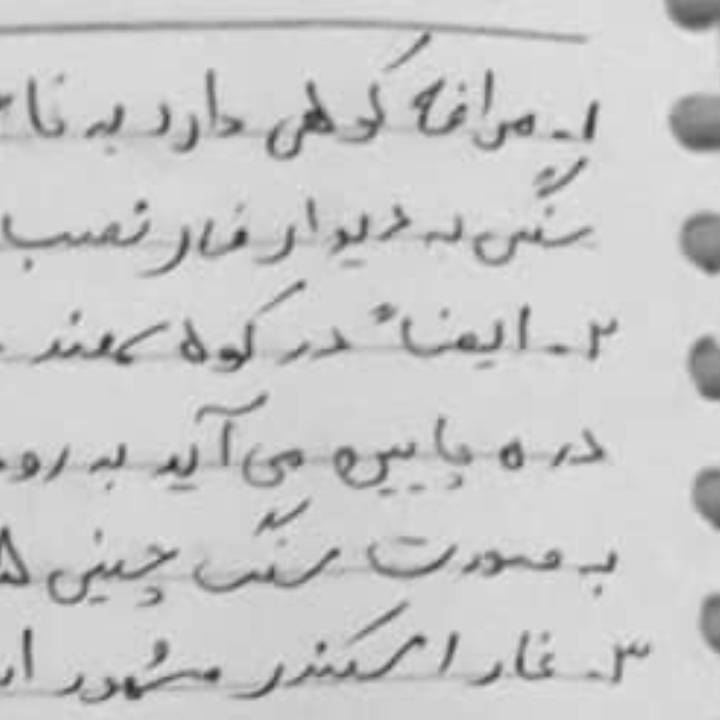 ۱- مراغه کوهی دارد به نا
سنگی به دیوار غار نصب
۲- ایضاً در کوه سهند
دره پایین می‌آید به رو
به صورت سنگ چینی ۵
۳- غار اسکندر مشهور